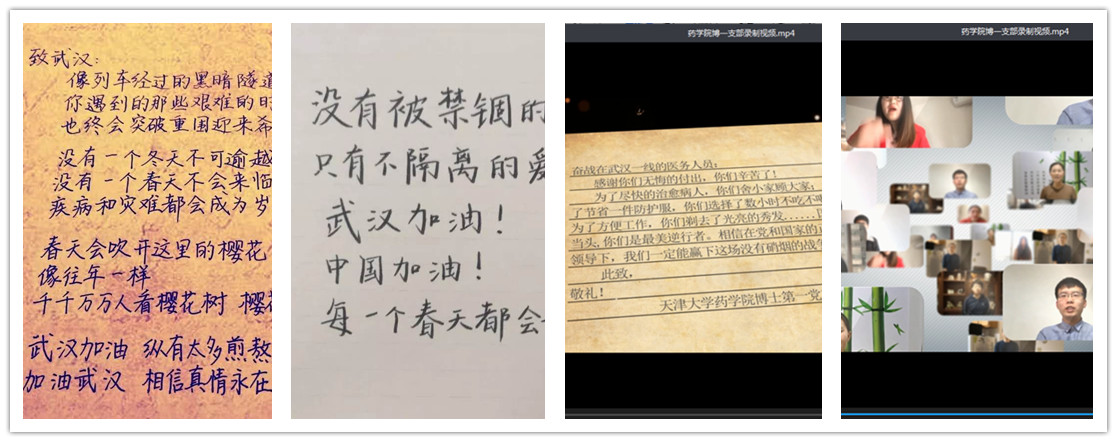 致武汉：
像列车经过的黑暗隧道
你遇到的那些艰难的时
也终会突破重围迎来希
没有一个冬天不可逾越
没有一个春天不会来临
疾病和灾难都会成为岁
春天会吹开这里的樱花
像往年一样
千千万万人看樱花树 樱花
武汉加油 纵有太多煎熬
加油武汉 相信真情永在
没有被禁锢的
只有不隔离的爱
武汉加油！
中国加油！
每一个春天都会
药学院博一支部录制视频.mp4
奋战在武汉一线的医务人员：
感谢你们无悔的付出，你们辛苦了！
为了尽快的治愈病人，你们舍小家顾大家；
了节省一件防护服，你们选择了数小时不吃不喝
为了方便工作，你们剃去了光亮的秀发……
当头，你们是最美逆行者。相信在党和国家的
领导下，我们一定能赢下这场没有硝烟的战争
此致，
敬礼！
天津大学药学院博士第一党
药学院博一支部录制视频.mp4